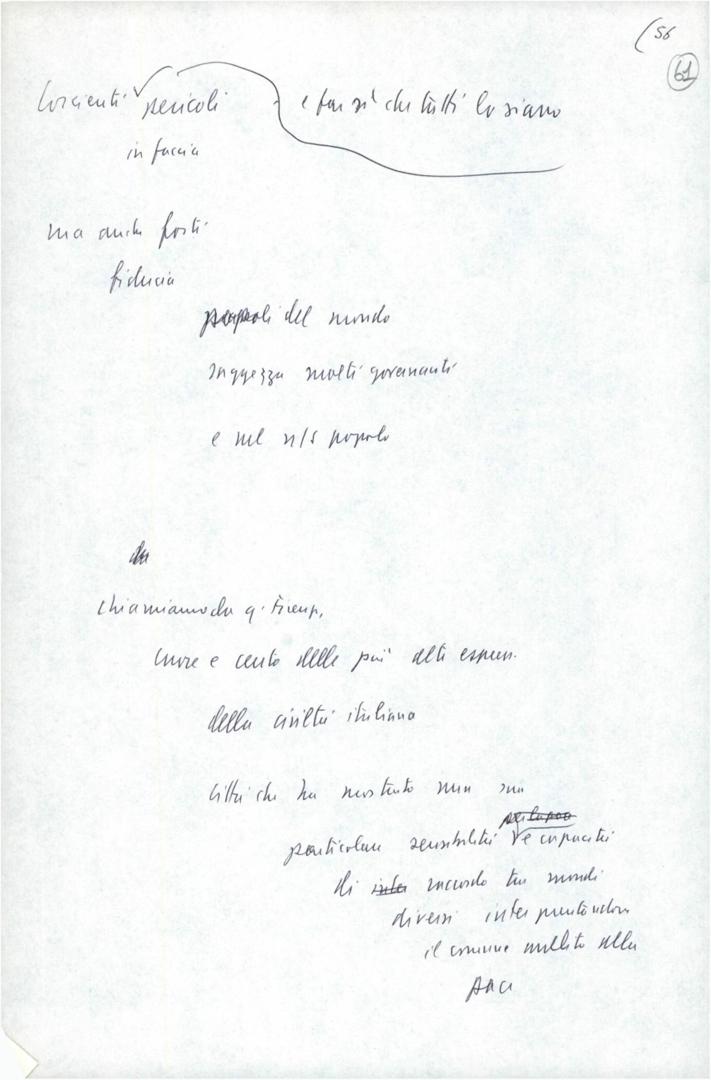 (56
61
Coscienti pericoli e far sì che tutti lo siano
in faccia
ma anche forti
fiducia
popoli del mondo
saggezza molti governanti
e nel n/s popolo
da
chiamiamo da q. Firenze,
cuore e cento delle più alte espress.
della civiltà italiana
Città che ha mostrato una sua
particolare sensibilità e capacità
di inter raccordo tra mondi
diversi interpretandone
il comune
pace